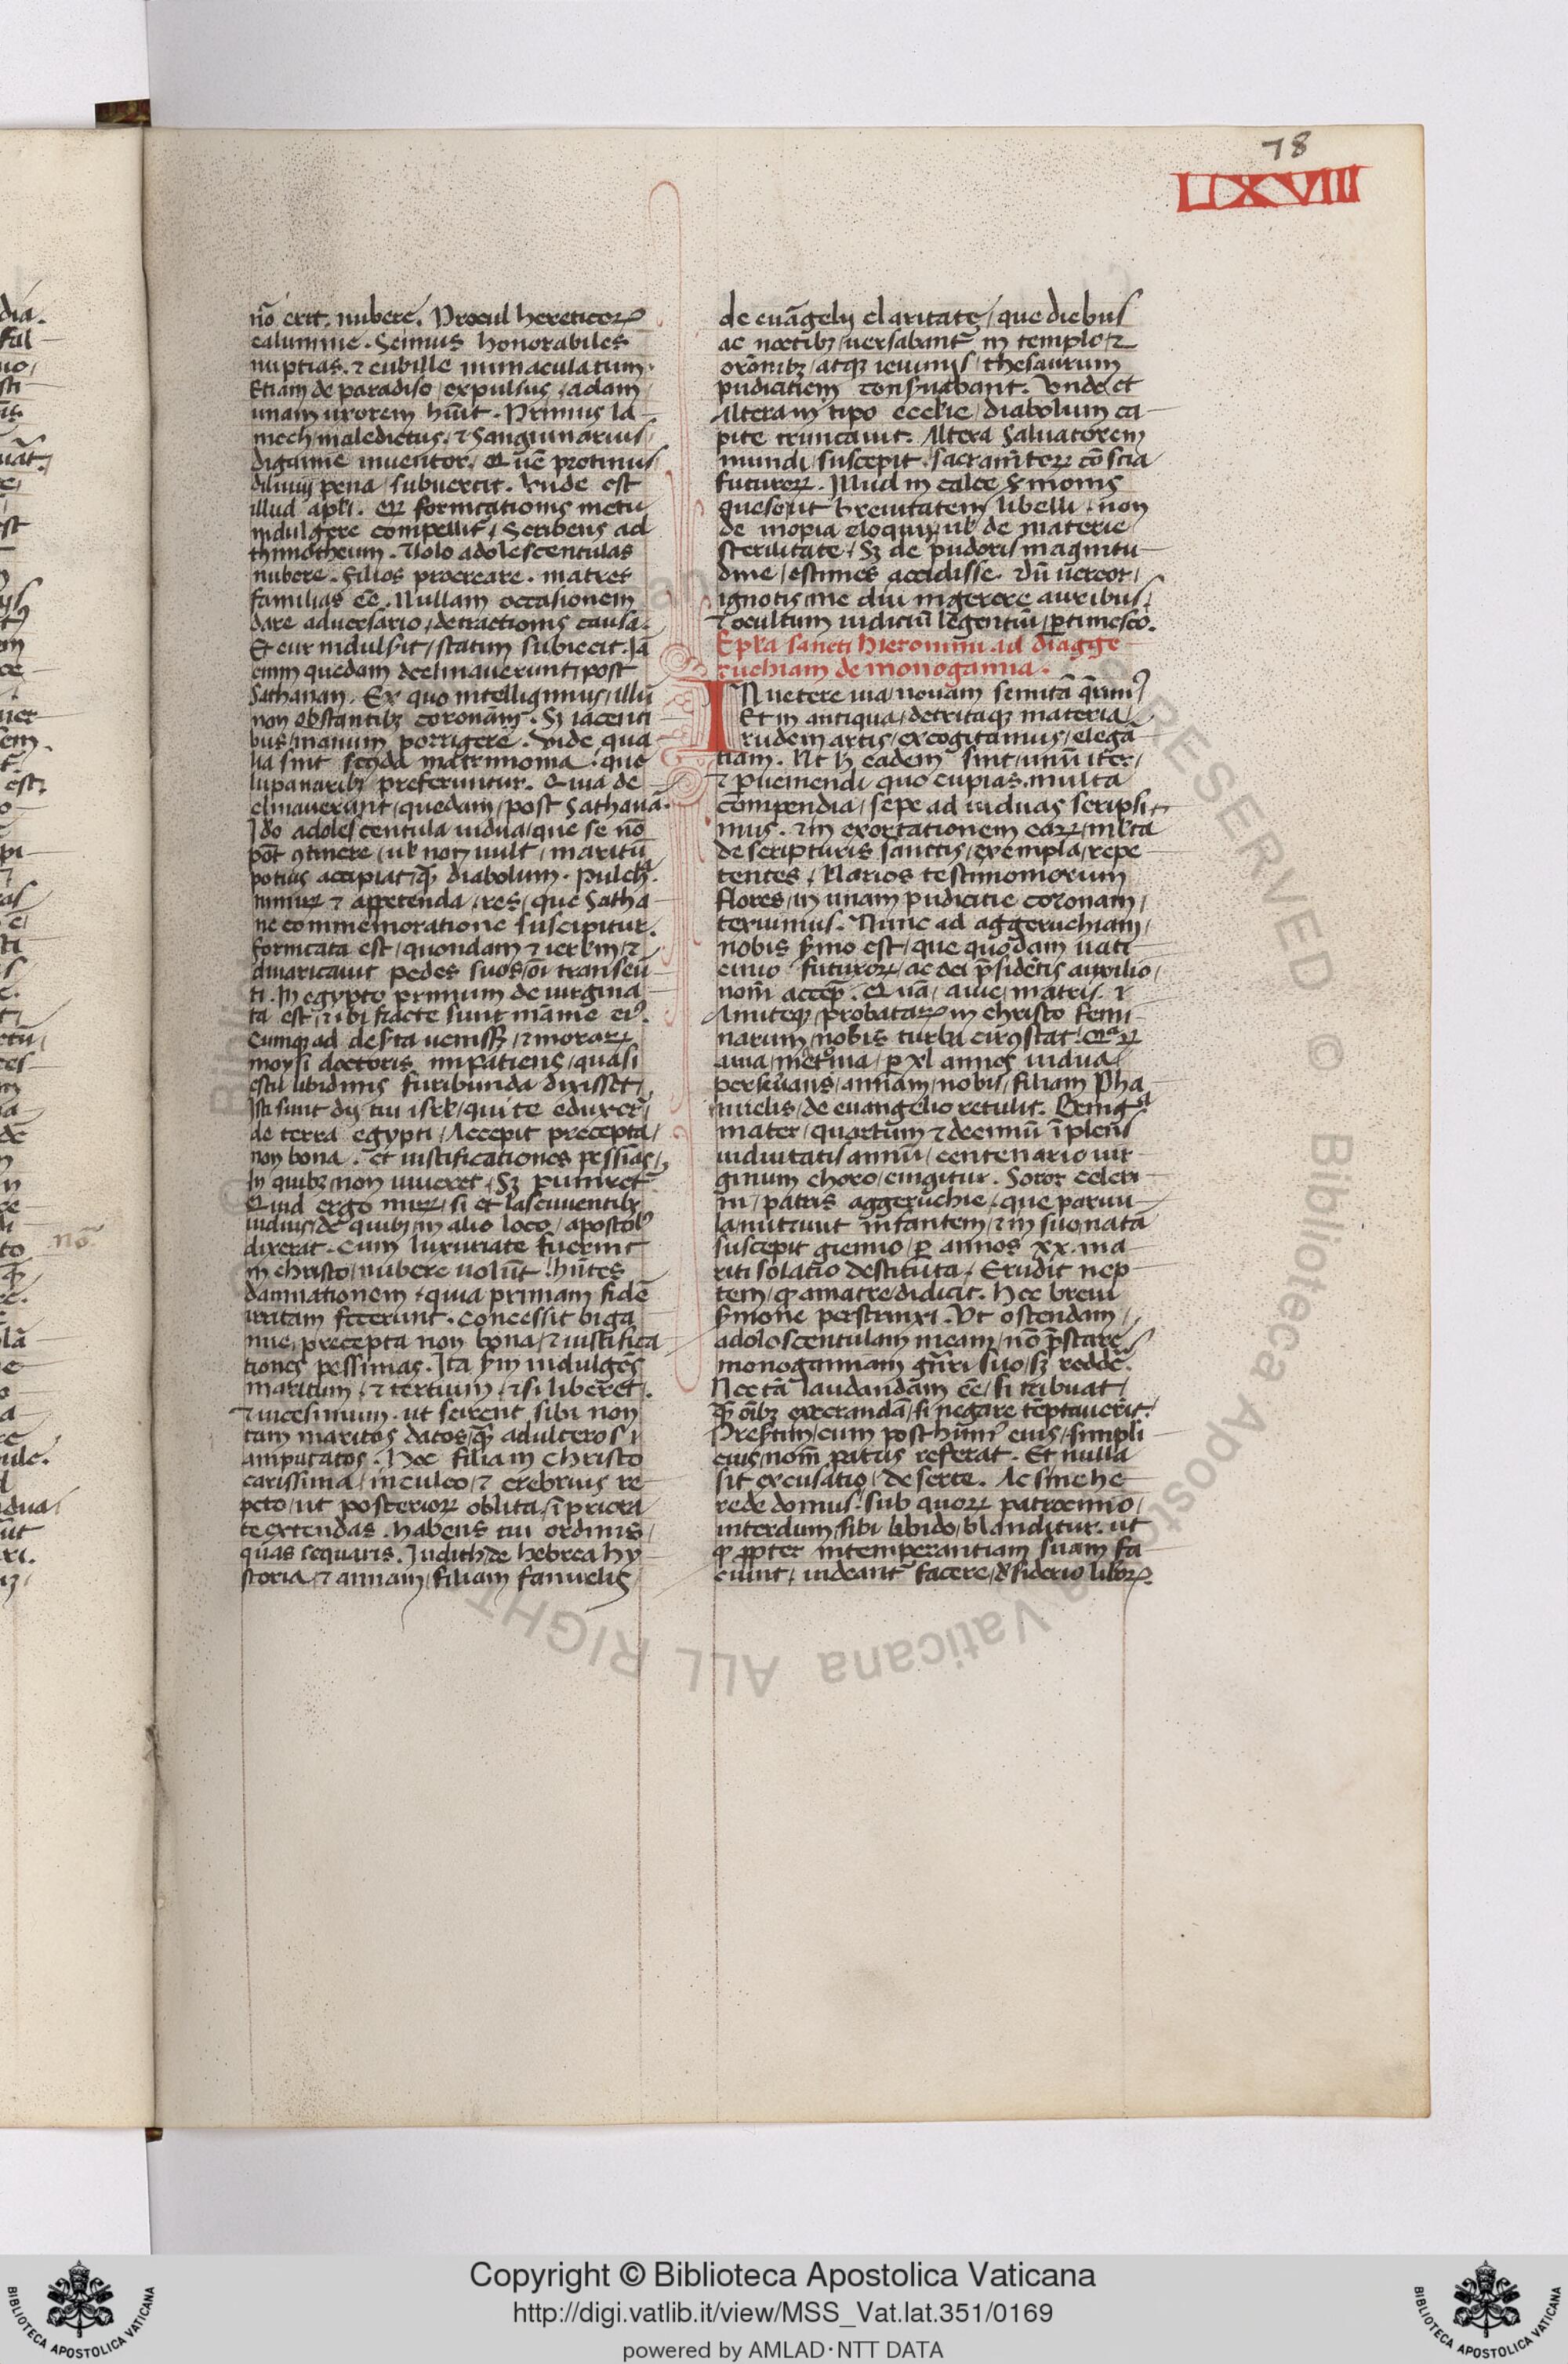 78
LIXVIII
nō erit nubere. Procul hereticoꝝ
calumnie. Scimus honorabiles
nuptias. ⁊ cubille inmaculatum.
Etiam de paradiso expulsus adam
unam uxorem hūit. Primus la
mech maledictus. ⁊ sanguinarius
digamie inuentor. que protinus
diluuij pena subuertit. Unde est
illud apłi. qꝫ fornicationis metu
indulgere compellit. Scribens ad
thimotheum. Uolo adolescentulas
nubere. filios procreare. matres
familias eē. Nullam occasionem
dare aduersario detractionis causa.
Et cur indulsit statim subiecit. Iā
enim quedam declinauerunt post
Sathanan. Ex quo intelligimus illū
non obstantibꝫ coronam. Sꝫ iacenti
bus manum porrigere. Uide qua
lia sint secūda matrimonia que
lupanaribꝫ preferuntur. Quia de
clinauerunt quedam post Sathanā.
Ido adolescentula uidua que se nō
pōt ꝯtinere uł non uult maritū
potius accipiat ꝙ̄ diabolum. Pulch
nimirꝫ ⁊ appetenda res que Satha
ne commemoratione suscipitur.
fornicata est quondam ⁊ ierłm ⁊
diuaricauit pedes suos oī transeū
ti. In egypto primum deuirgina
ta est ⁊ ibi fracte sunt māme eiꝰ.
Cumqꝫ ad deserta uenissꝫ ⁊ moraꝝ
moysi doctoris inpatiens quasi
estu libidinis furibunda dixisset
Isti sunt dij tui isrł qui te eduxerūt
de terra egypti Accepit precepta
non bona. et iustificationes pessimas
in quibꝫ non uiueret. Sꝫ puniret̄
Quid ergo mirꝫ si et lasciuientibꝫ
uiduis de quibꝫ in alio loco apostolꝰ
dixerat. Cum luxuriate fuerint
in christo nubere uolūt hn̄tes
damnationem quia primam fidē
irritam fecerunt. Concessit biga
mie precepta non bona ⁊ iustifica
tiones pessimas. Ita secundum indulgēs
maritum ⁊ tertium ⁊ si liberet.
⁊ uicesimum. ut scirent sibi non
tam maritos datos ꝙ̄ adulteros
amputatos. Hec filiam Christo
carissima inculco ⁊ crebrius re
peto ut posterioꝝ oblita ī priora
te extendas. habens tui ordinis
quas sequaris. Judith de hebrea hy
storia ⁊ annam filiam fanuelis
de euāgelij claritate que diebus
ac noctibꝫ uersabant̄ in templo ⁊
orōnibꝫ atqꝫ ieiunijs thesaurum
pudicitiem conseruabant. Unde et
Altera in tipo ecclesie diabolum ca
pite truncauit. Altera Saluatorem
mundi suscepit sacramentoꝝ cōscia
futuroꝝ. Illud in calce sermonis
queso ut breuitatem libelli non
de inopia eloquij uł de materie
sterilitate. Sꝫ de pudoris magnitu
dine estimes accidisse. dū uereor
ignotis me diu ingerere auribus
⁊ ocultum iudiciū legentiū pertimesco.
Epła sancti hieronimi ad diagge
ruchiam de monogamia.
IN uetere uia nouam semitā qrimꝰ
Et in antiqua detritaqꝫ materia
rudem artis excogitamus elegā
tiam. Ut h eadem sint unū iter
⁊ perueniendi quo cupias multa
compendia sepe ad uiduas scripsi
mus. ⁊ in exortationem eaꝝ multa
de scripturis sanctis exempla repe
tentes Uarios testimoniorum
flores in unam pudicitie coronam
teximus. Nunc ad aggeruchiam
nobis sermo est que quodam uati
cinio futuroꝝ ac dei p̄sidētis auxilio
nom̄ accep̄. Quā auie matris ⁊
Amiteqꝫ probataꝝ in christo femi
narum nobis turba circūstat
auia metronia per xl annos uidua
perseuerans annam nobis filiam Pha
nuelis de euangelio retulit. Benigna
mater quartum ⁊ decimū īplens
uiduitatis annū centenario uir
ginum choro cingitur. Soror celeri
ni patris aggeruchie que paruu
la nutriuit infantem ⁊ in suo natā
suscepit gremio per annos xx. ma
riti solatio destituta. Erudit nep
tem ꝙ a matre didicit. Hec breui
sermone perstrinxi. Ut ostendam
adolescentulam meam nō p̄stare
monogamiam gn̄ri suo sꝫ reddē
Nec tā laudandam eē si tribuat
ꝙ̄ oībꝫ execrandā si negare tēptauerit.
Presertim cum posthumꝰ eius simpli
cius nom̄ patris referat. Et nulla
sit excusatio deserte. Ac sine he
rede domus sub quoꝝ patrocinio
interdum sibi libido blanditur. ut
ꝙ propter intemperantiam suam fa
ciunt uideant̄ facere desiderio liboꝝ.
nō
Copyright © Biblioteca Apostolica Vaticana
http://digi.vatlib.it/view/MSS_Vat.lat.351/0169
powered by AMLAD·NTT DATA
BIBLIOTECA APOSTOLICA VATICANA
BIBLIOTECA APOSTOLICA VATICANA